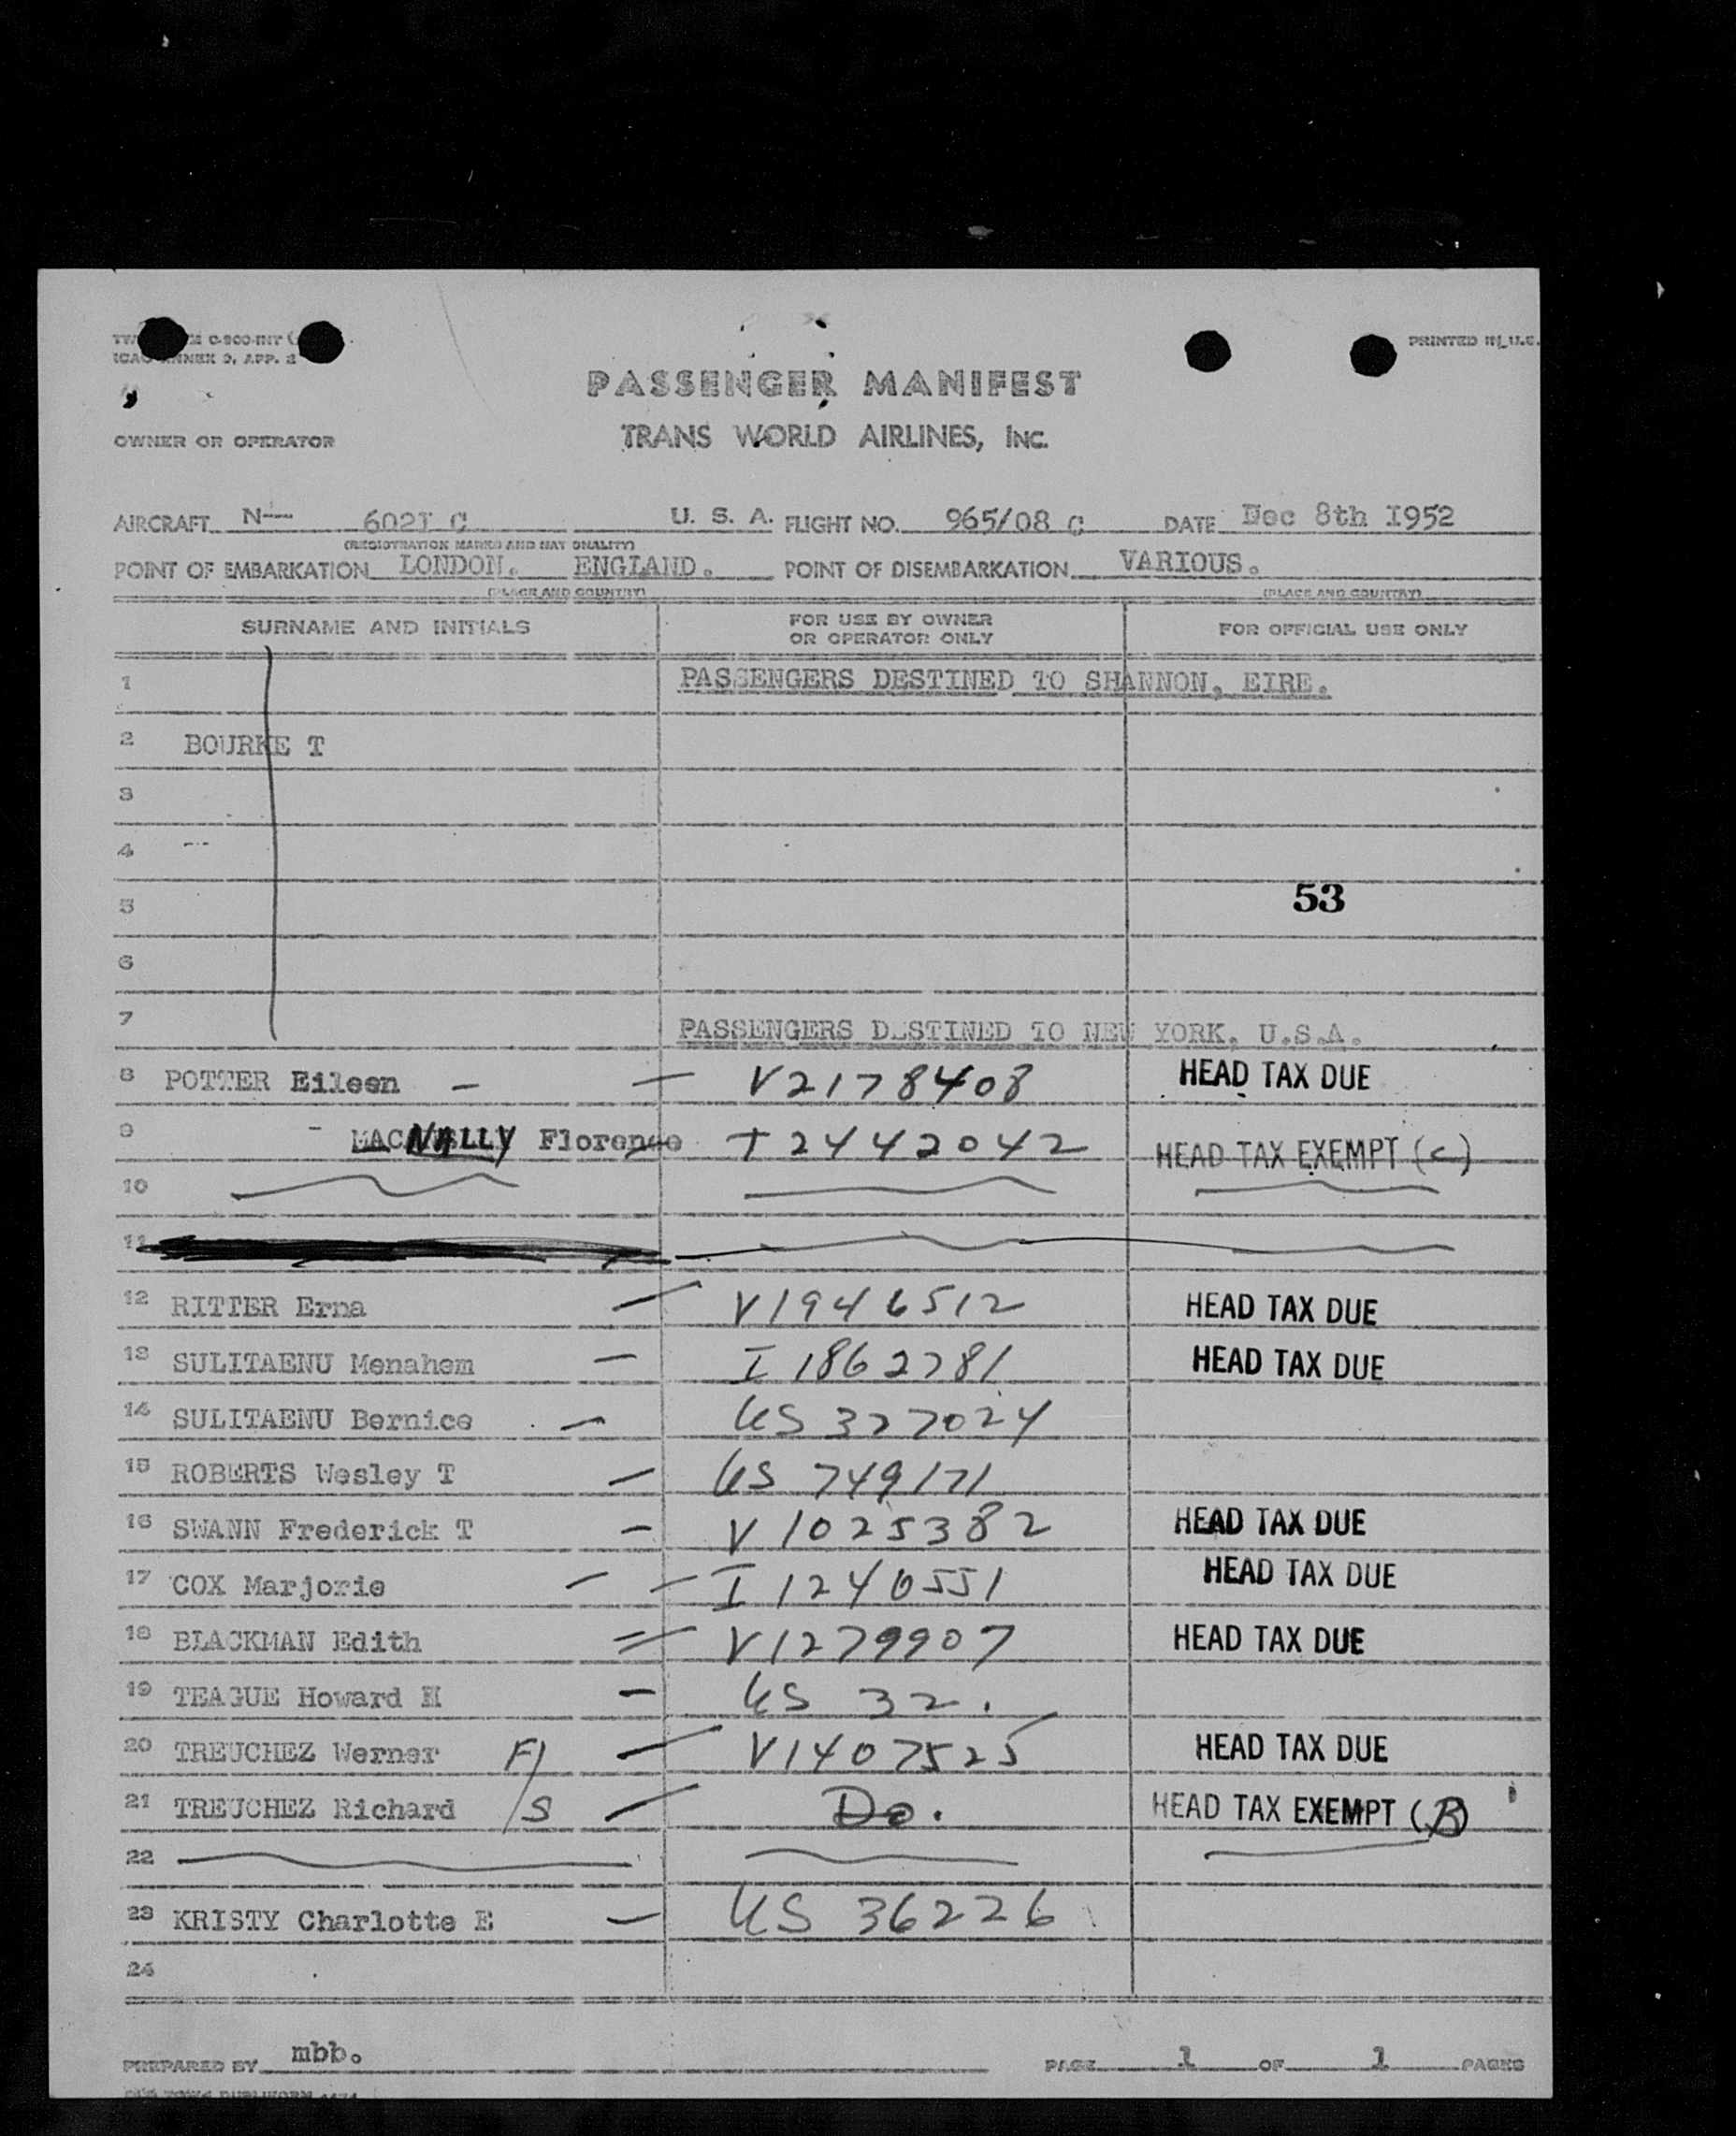 C-900-INT
ANNEX 9, APP. 2
PRINTED IN U.S.
PASSENGER MANIFEST
OWNER OR OPERATOR TRANS WORLD AIRLINES, INC.
AIRCRAFT N— C U. S. A. FLIGHT NO. 965/08 C DATE Dec 8th 1952
(REGISTRATION MARKS AND NATIONALITY)
POINT OF EMBARKATION LONDON. ENGLAND. POINT OF DISEMBARKATION VARIOUS.
(PLACE AND COUNTRY) (PLACE AND COUNTRY)
SURNAME AND INITIALS FOR USE BY OWNER OR OPERATOR ONLY FOR OFFICIAL USE ONLY
1 PASSENGERS DESTINED TO SHANNON, EIRE.
2 BOURKE T
3
4
5 53
6
7 PASSENGERS DESTINED TO NEW YORK, U.S.A.
8 POTTER Eileen — — V2178408 HEAD TAX DUE
9 MACNALLY Florence T2442042 HEAD TAX EXEMPT (c)
10
11
12 RITTER Erna — V1946512 HEAD TAX DUE
13 SULITAENU Menahem — I 1862781 HEAD TAX DUE
14 SULITAENU Bernice — US 327024
15 ROBERTS Wesley T — US 749171
16 SWANN Frederick T — V 1025382 HEAD TAX DUE
17 COX Marjorie — — I 1240551 HEAD TAX DUE
18 BLACKMAN Edith = V1279907 HEAD TAX DUE
19 TEAGUE Howard H — US 32.
20 TREUCHEZ Werner F/ — V1407525 HEAD TAX DUE
21 TREUCHEZ Richard /S — Do. HEAD TAX EXEMPT (B)
22
23 KRISTY Charlotte E — US 36226
24
PREPARED BY mbb. PAGE 1 OF 1 PAGES